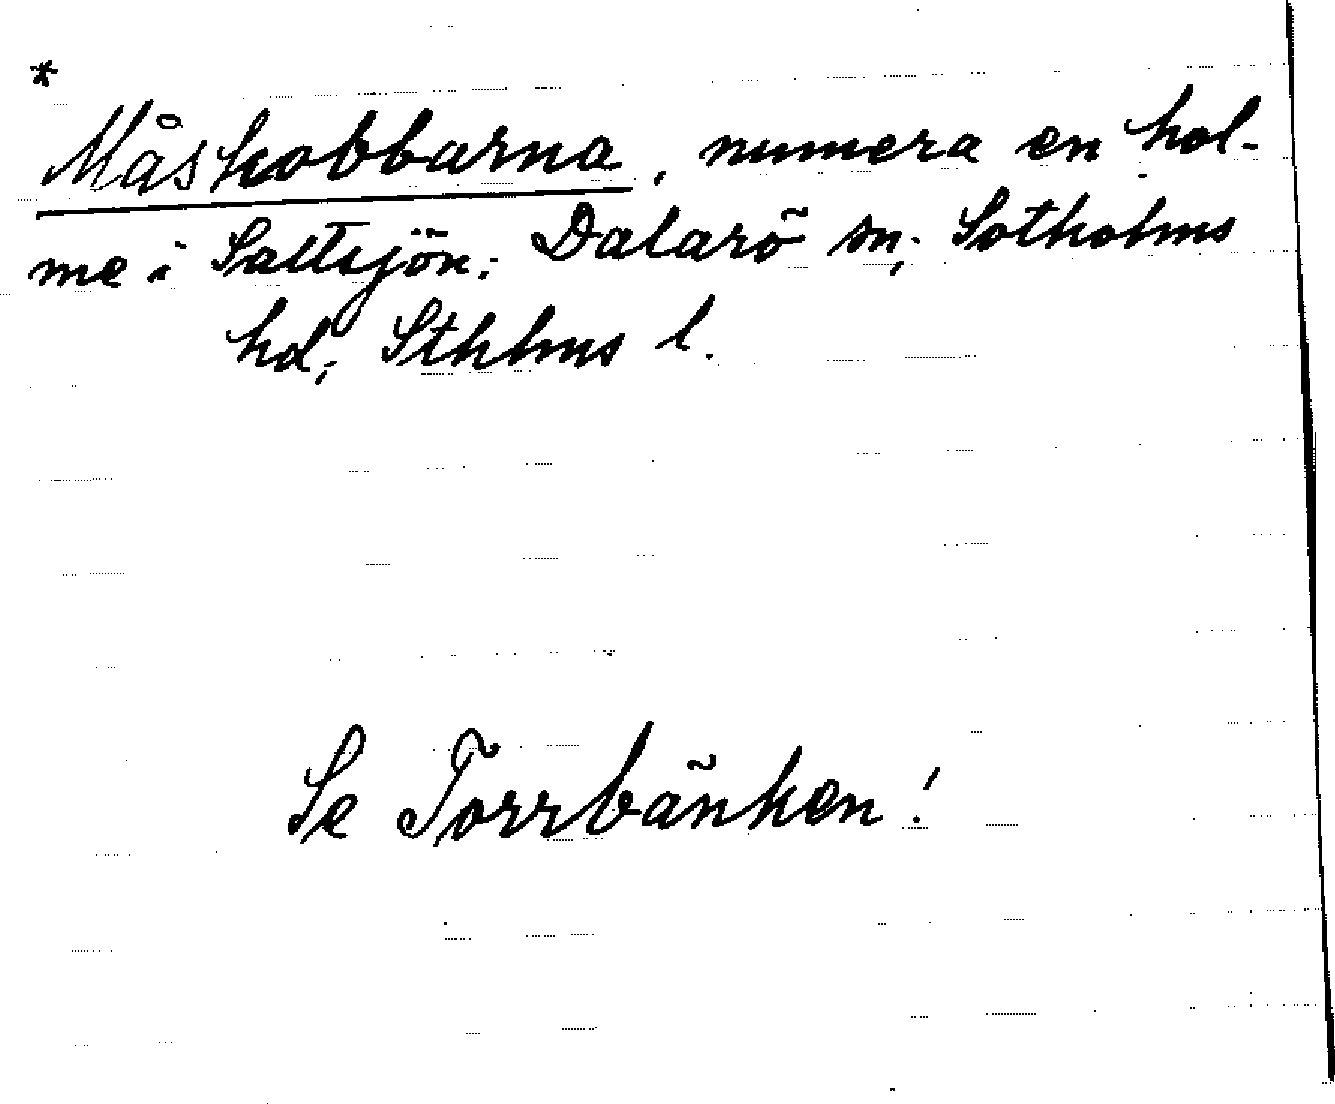 *
Måskobbarna, numera en hol-
me i Saltsjön; Dalarö sn; Sotholms
hd; Sthlms l.
Se Torrbänken!